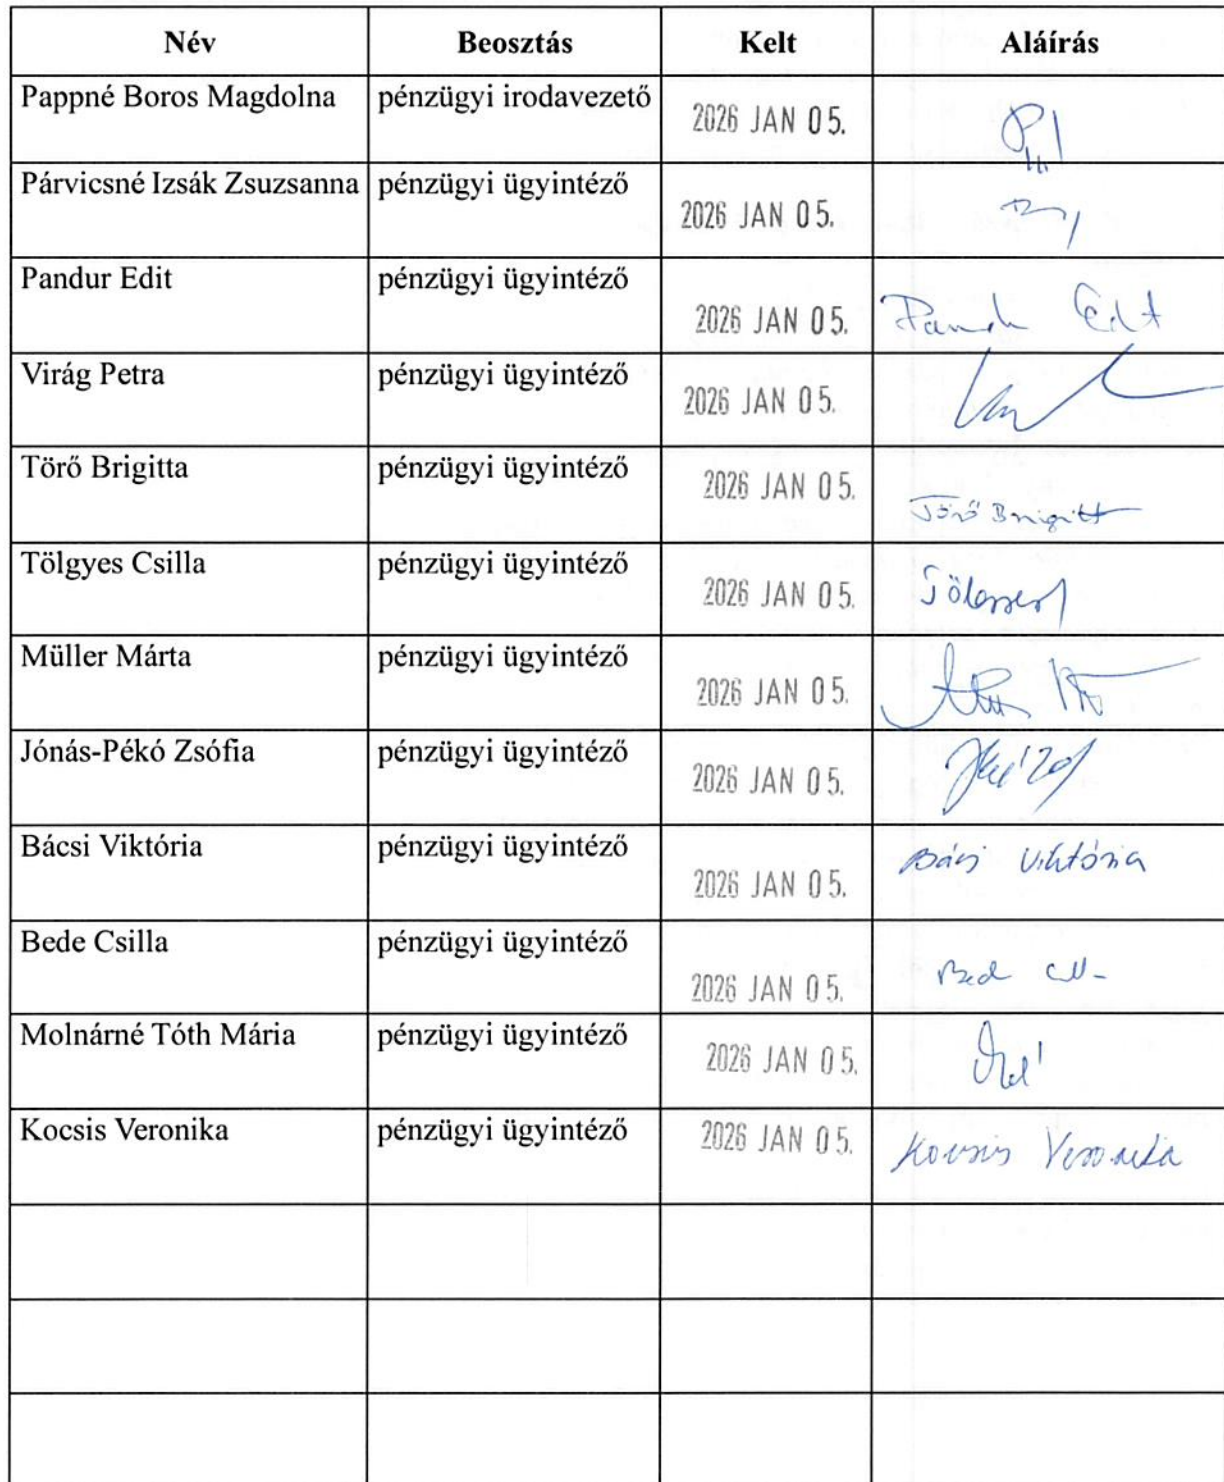 Név Beosztás Kelt Aláírás
Pappné Boros Magdolna pénzügyi irodavezető 2026 JAN 05.
Párvicsné Izsák Zsuzsanna pénzügyi ügyintéző 2026 JAN 05.
Pandur Edit pénzügyi ügyintéző 2026 JAN 05.
Virág Petra pénzügyi ügyintéző 2026 JAN 05.
Törő Brigitta pénzügyi ügyintéző 2026 JAN 05.
Tölgyes Csilla pénzügyi ügyintéző 2026 JAN 05.
Müller Márta pénzügyi ügyintéző 2026 JAN 05.
Jónás-Pékó Zsófia pénzügyi ügyintéző 2026 JAN 05.
Bácsi Viktória pénzügyi ügyintéző 2026 JAN 05. Bácsi Viktória
Bede Csilla pénzügyi ügyintéző 2026 JAN 05.
Molnárné Tóth Mária pénzügyi ügyintéző 2026 JAN 05.
Kocsis Veronika pénzügyi ügyintéző 2026 JAN 05. Kocsis Veronika